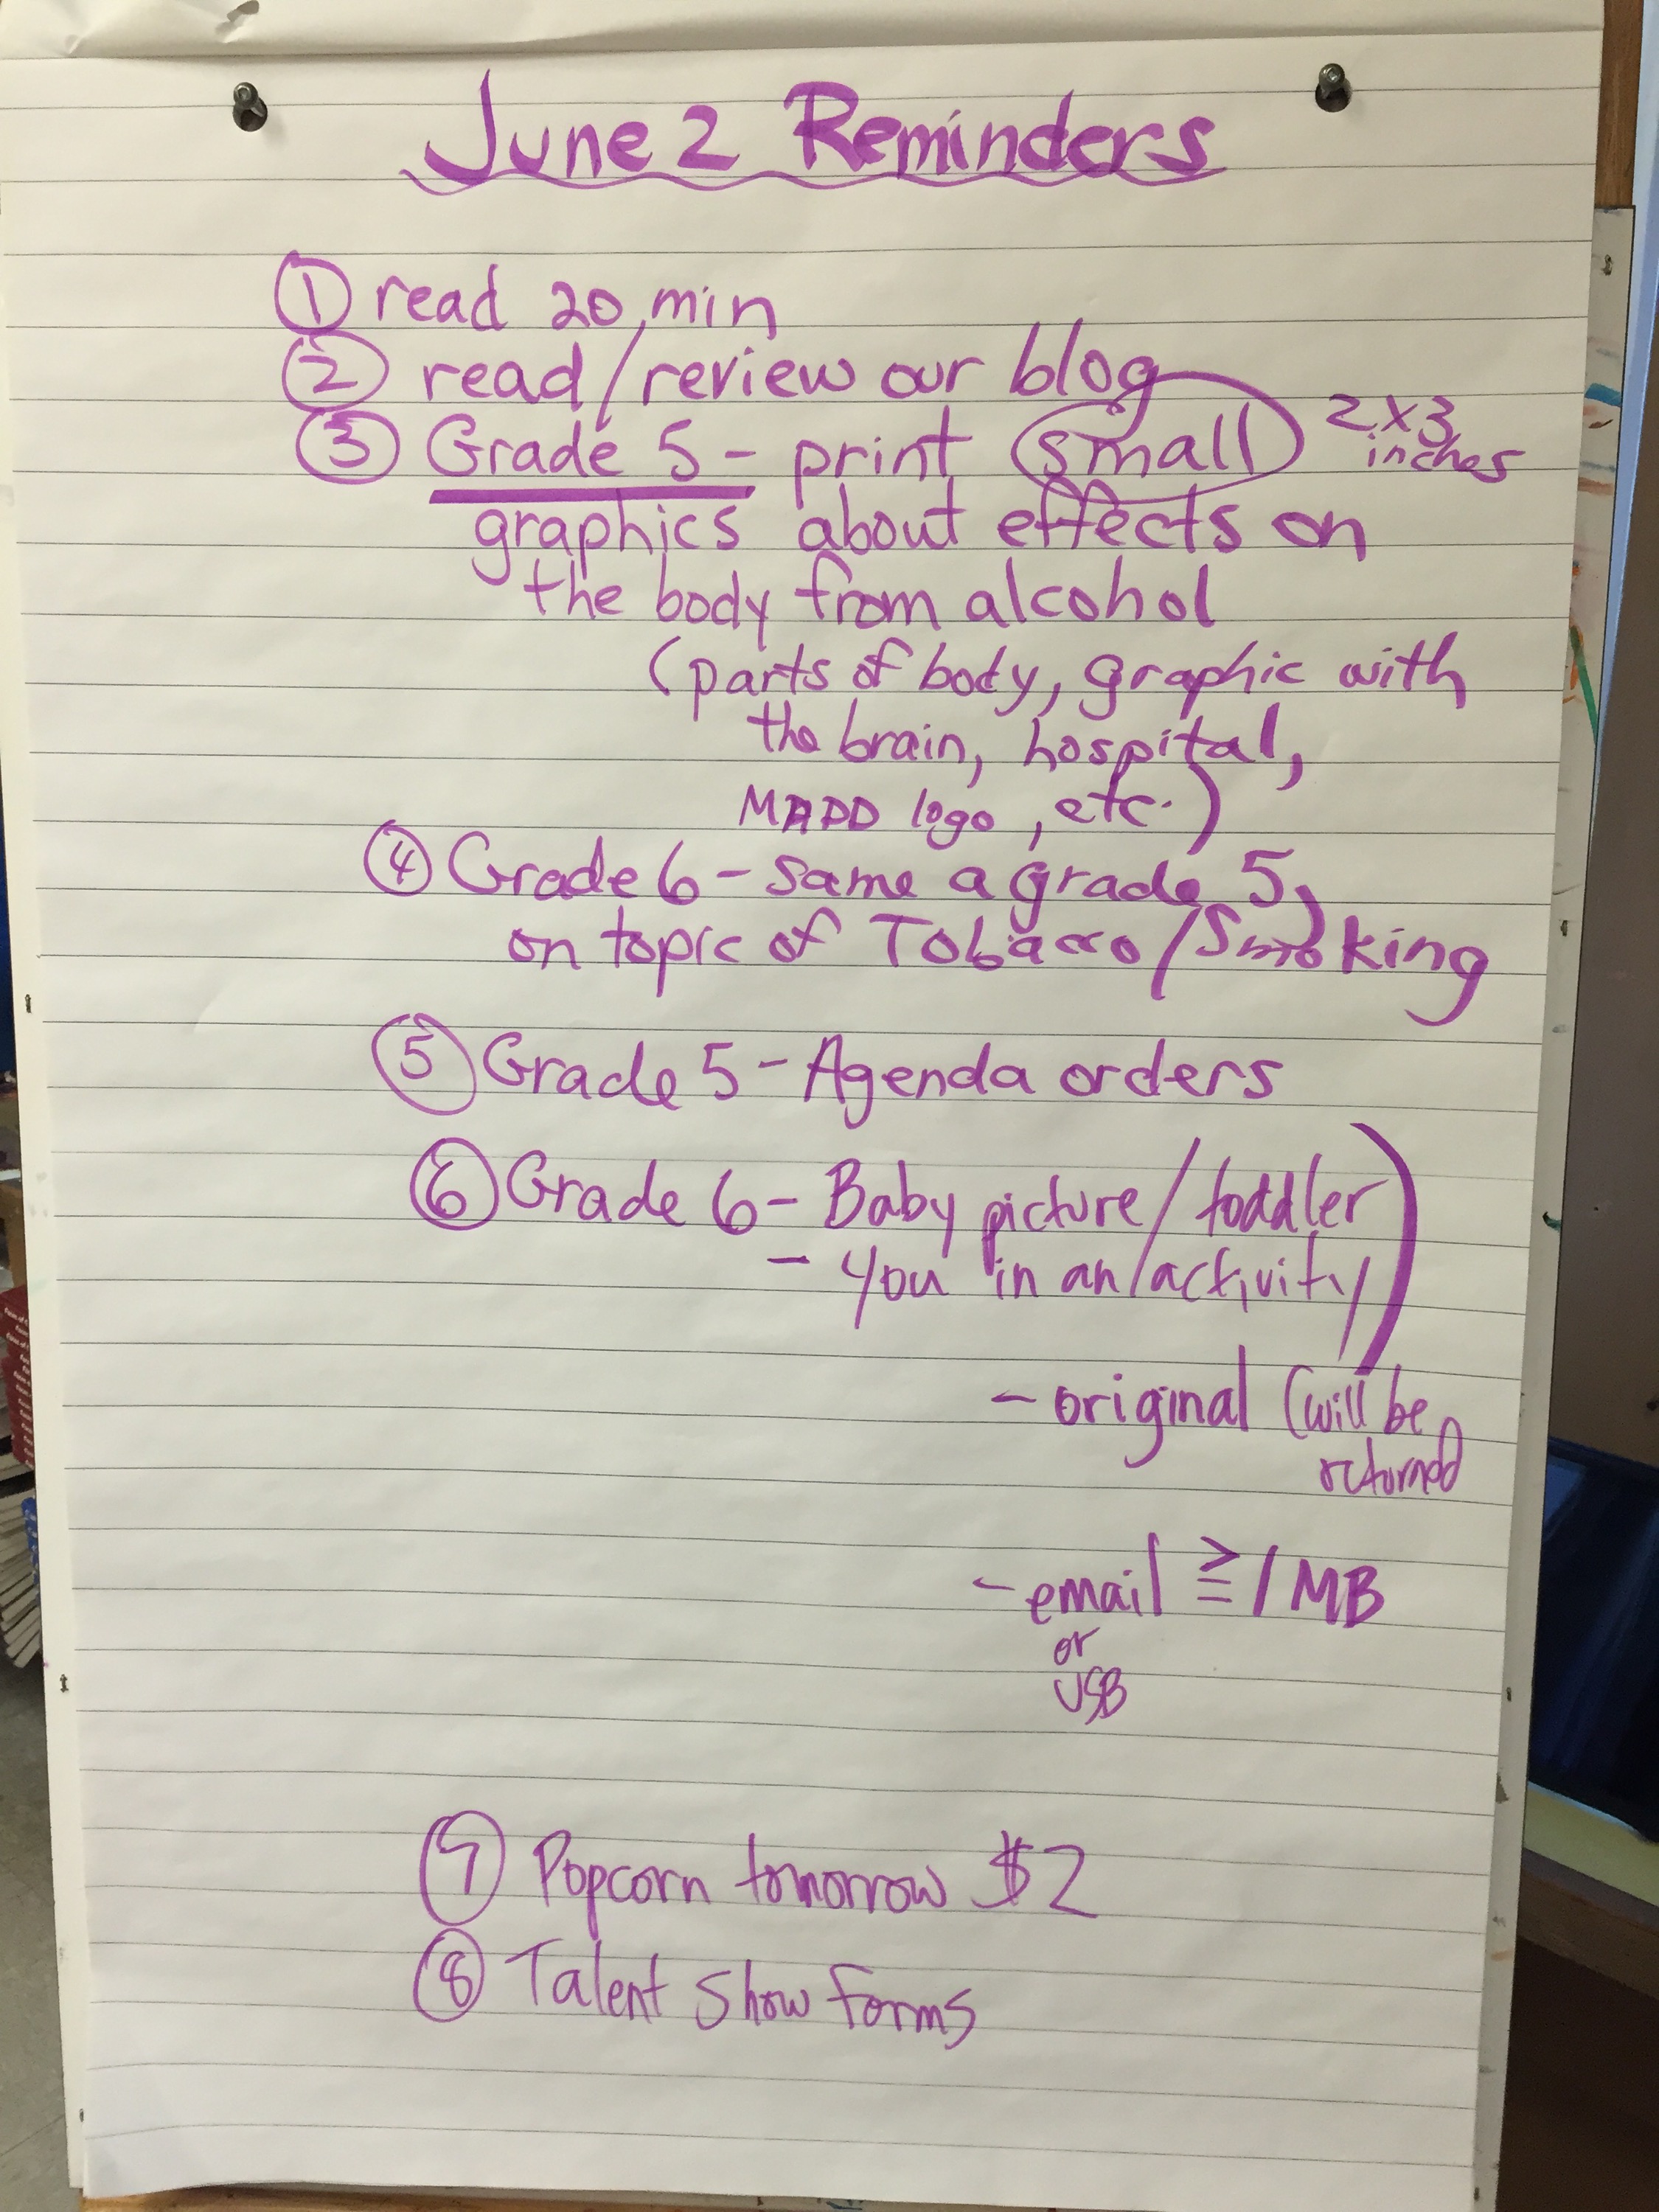 June 2 Reminders
① read 20 min
② read/review our blog
③ Grade 5 - print small 2x3 inches
graphics about effects on
the body from alcohol
(parts of body, graphic with
the brain, hospital,
MADD logo, etc.)
④ Grade 6 - same a grade 5,
on topic of Tobacco/Smoking
⑤ Grade 5 - Agenda orders
⑥ Grade 6 - Baby picture/toddler
- you in an activity
- original (will be
returned)
- email ≧ 1 MB
or
USB
⑦ Popcorn tomorrow $2
⑧ Talent Show forms